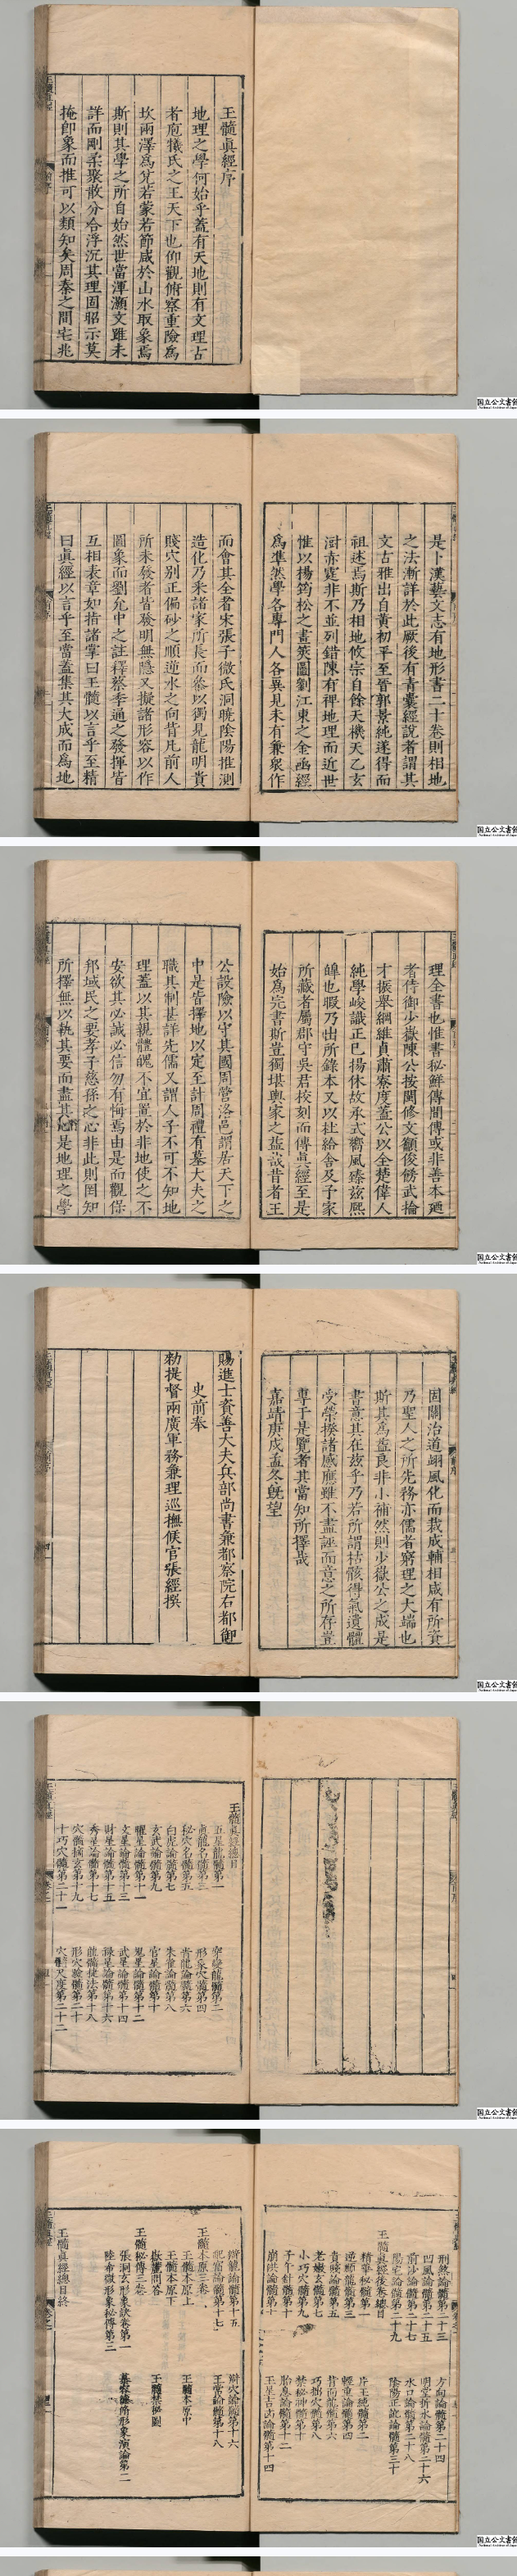 玉髓眞經序
地理之學何始乎蓋有天地則有文理古
者庖犧氏之王天下也仰觀俯察重險爲
坎兩澤爲兌若蒙若節咸於山水取象焉
斯則其學之所自始然世當渾灝文雖未
詳而剛柔聚散分合浮沉其理固昭示莫
掩卽象而推可以類知矣周秦之間宅兆
国立公文書館
是卜漢藝文志有地形書二十卷則相地
之法漸詳於此厥後有青囊經說者謂其
文古雅出自黃初平至晉郭景純遂得而
祖述焉斯乃相地攸宗自餘天機天乙玄
澍亦寔非不並列錯陳有裨地理而近世
惟以楊筠松之畫筴圖劉江東之金函經
爲準然學各專門人各異見未有兼衆作
而會其全者宋張子微氏洞曉陰陽推測
造化乃采諸家所長而叅以獨見龍明貴
賤穴別正偏砂之順逆水之向背凡前人
所未發者皆發明無隱又擬諸形容以作
圖象而劉允中之註釋蔡季通之發揮皆
互相表章如指諸掌曰玉髓以言乎至精
曰眞經以言乎至當蓋集其大成而爲地
国立公文書館
理全書也惟書秘鮮傳間傳或非善本廼
者侍御少嶽陳公按閩修文籲俊傍武掄
才振舉綱維貞肅寮度蓋公以全楚偉人
純學峻識正巳揚休故承式嚮風臻玆熙
皥也暇乃出所錄本又以壯給舍及予家
所藏者屬郡守吳君校刻而傳眞經至是
始爲完書斯豈獨堪輿家之益哉昔者王
公設險以守其國周營洛邑謂居天下之
中是皆擇地以定至計周禮有墓大夫之
職其制甚詳先儒又謂人子不可不知地
理蓋以其親體魄不宜置於非地使之不
安欲其必誠必信勿有悔焉由是而觀保
邦域民之要孝子慈孫之心非此則罔知
所擇無以執其要而盡其心是地理之學
国立公文書館
固關治道翊風化而裁成輔相咸有所資
乃聖人之所先務亦儒者窮理之大端也
斯其爲益良非小補然則少嶽公之成是
書意其在玆乎乃若所謂枯骸得氣遺體
受榮揆諸感應雖不盡誣而意之所存豈
專于是覽者其當知所擇哉
嘉靖庚戌孟冬旣望
賜進士資善大夫兵部尚書兼都察院右都御
史前奉
勑提督兩廣軍務兼理巡撫候官張經撰
国立公文書館
玉髓眞經總目
五星龍髓第一
穿變龍髓第二
眞龍名髓第三
形象穴髓第四
秘穴名髓第五
青龍論髓第六
白虎論髓第七
朱雀論髓第八
玄武論髓第九
官星論髓第十
曜星論髓第十一
鬼星論髓第十二
文星論髓第十三
武星論髓第十四
財星論髓第十五
祿星論髓第十六
秀星論髓第十七
龍髓捷法第十八
穴髓摘玄第十九
形穴論髓第二十
十巧穴髓第二十一
穴髓尺度第二十二
国立公文書館
刑煞論髓第二十三
方向論髓第二十四
凹風論髓第二十五
明堂折水論髓第二十六
前沙論髓第二十七
水口論髓第二十八
陽宅論髓第二十九
陰陽正訛論髓第三十
玉髓眞經後卷總目
精華秘髓第一
片玉純髓第二
逆順龍髓第三
輕重論髓第四
貴賤論髓第五
背面龍髓第六
老嫩玄髓第七
巧拙穴髓第八
小巧穴髓第九
禁秘神髓第十
子午針髓第十一
胎息論髓第十二
玉星吉凶論髓第十四
辯龍論髓第十五
辯穴論髓第十六
王堂論髓第十八
玉髓本原三卷
玉髓本原上
玉髓本原中
玉髓本原下
玉髓禁秘圖
嶽麓問答
玉髓秘傳三卷
張洞玄形象訣套第一
陸希聲形象秘傳第三
玉髓眞經總目終
国立公文書館